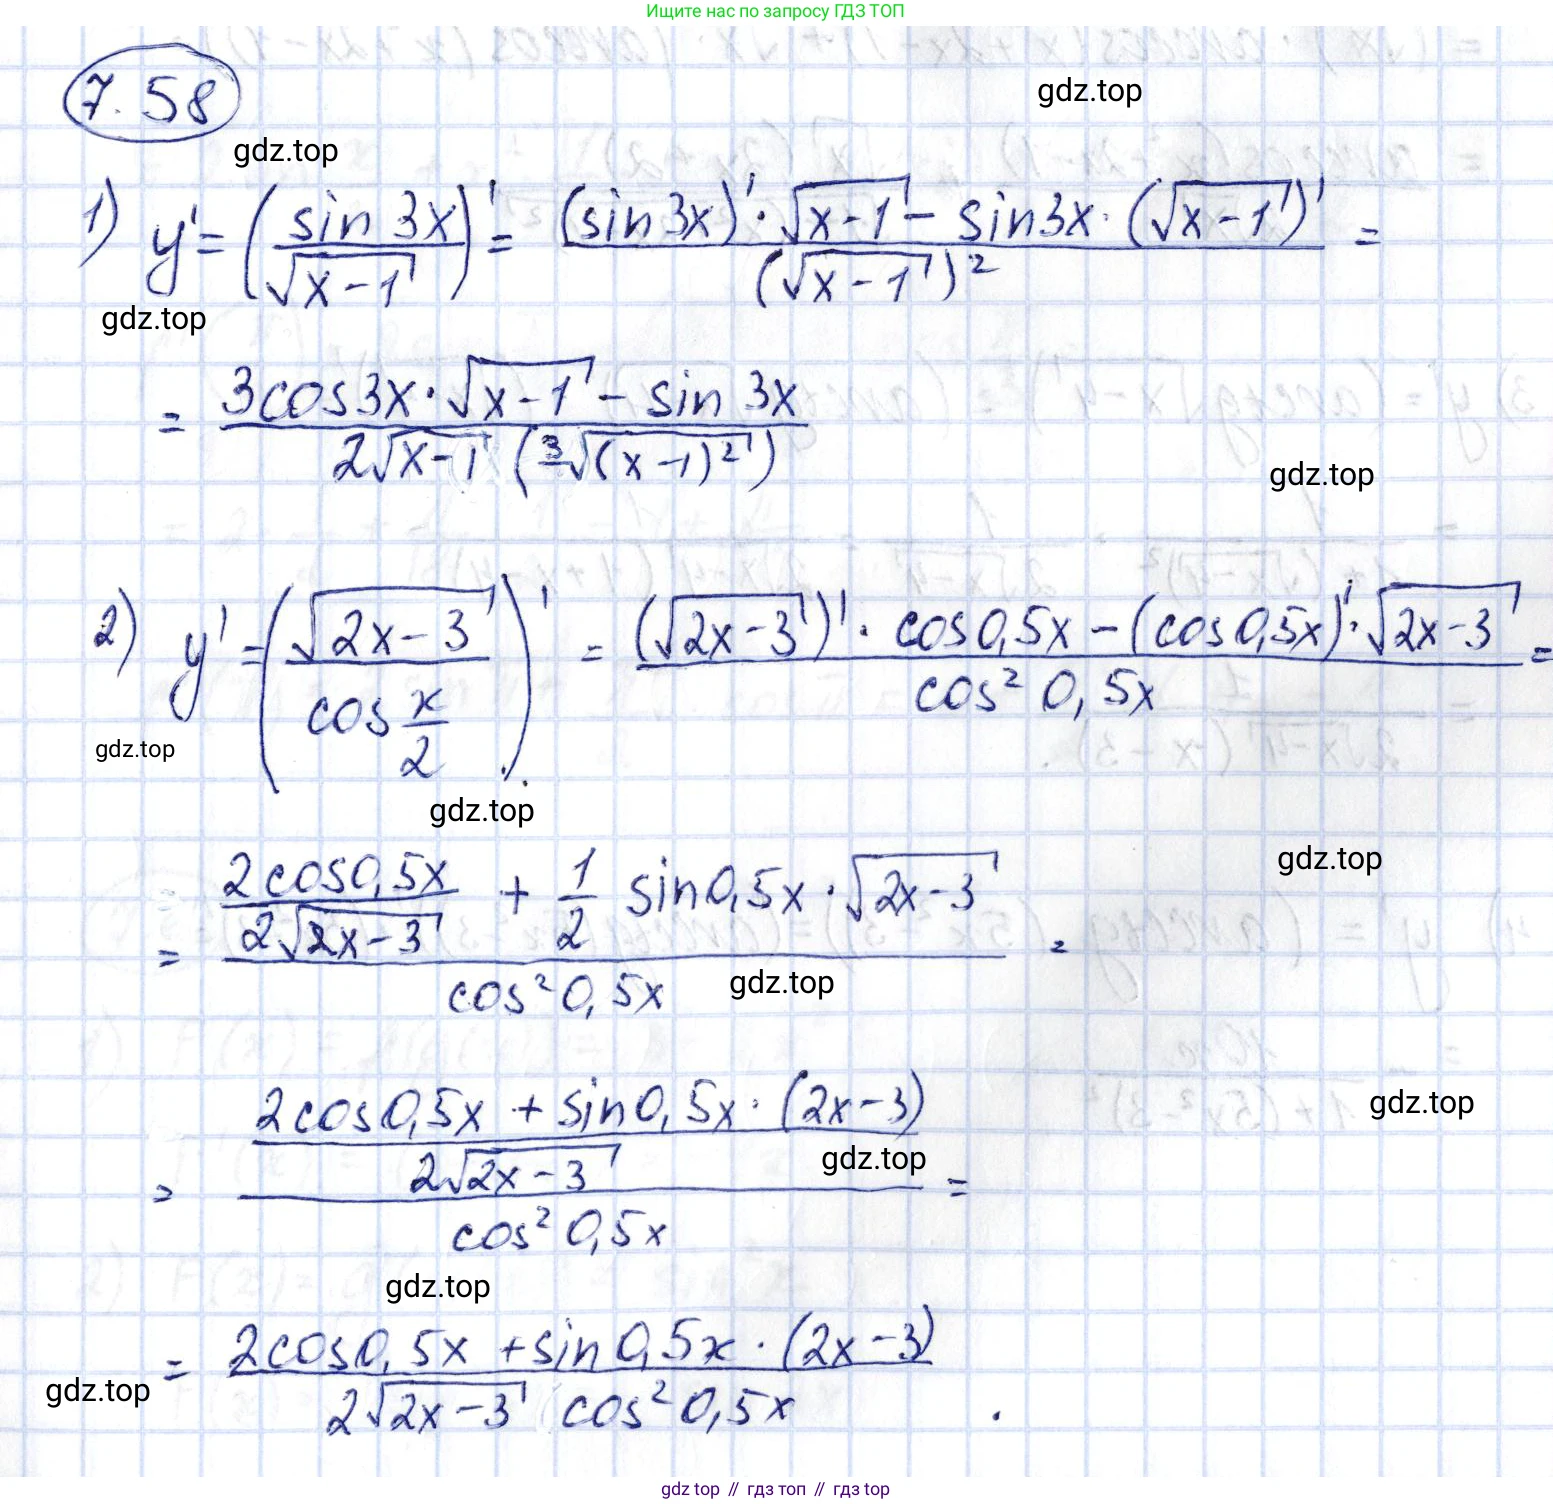 Ищите нас по запросу ГДЗ ТОП
7.58
gdz.top
gdz.top
1) y' = (sin 3x / √(x-1))' = ((sin 3x)' · √(x-1) - sin 3x · (√(x-1))') / (√(x-1))² =
gdz.top
= (3cos 3x · √(x-1) - sin 3x) / (2√(x-1) (³√((x-1)²)))
gdz.top
2) y' = (√(2x-3) / cos x/2)' = ((√(2x-3))' · cos 0,5x - (cos 0,5x)' · √(2x-3)) / cos² 0,5x =
gdz.top
gdz.top
gdz.top
= (2cos 0,5x / 2√(2x-3) + 1/2 sin 0,5x · √(2x-3)) / cos² 0,5x =
gdz.top
gdz.top
= ((2cos 0,5x + sin 0,5x · (2x-3)) / 2√(2x-3)) / cos² 0,5x =
gdz.top
gdz.top
= (2cos 0,5x + sin 0,5x · (2x-3)) / (2√(2x-3) cos² 0,5x) .
gdz.top
gdz top // гдз топ // гдз top